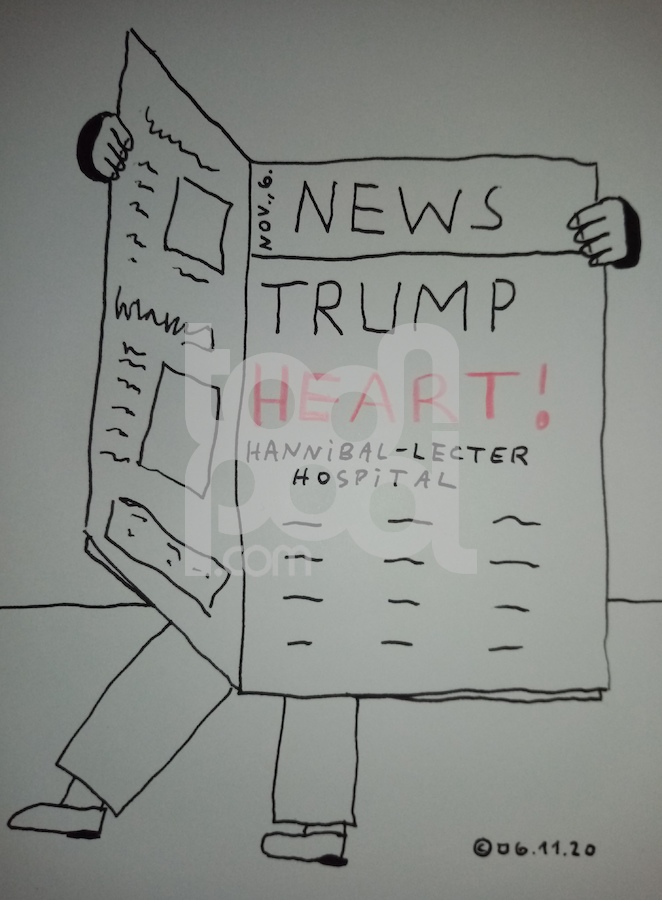 NOV., 6.
NEWS
TRUMP
HEART!
HANNiBAL-LECTER
HOSPiTAL
toonpool.com
©06.11.20